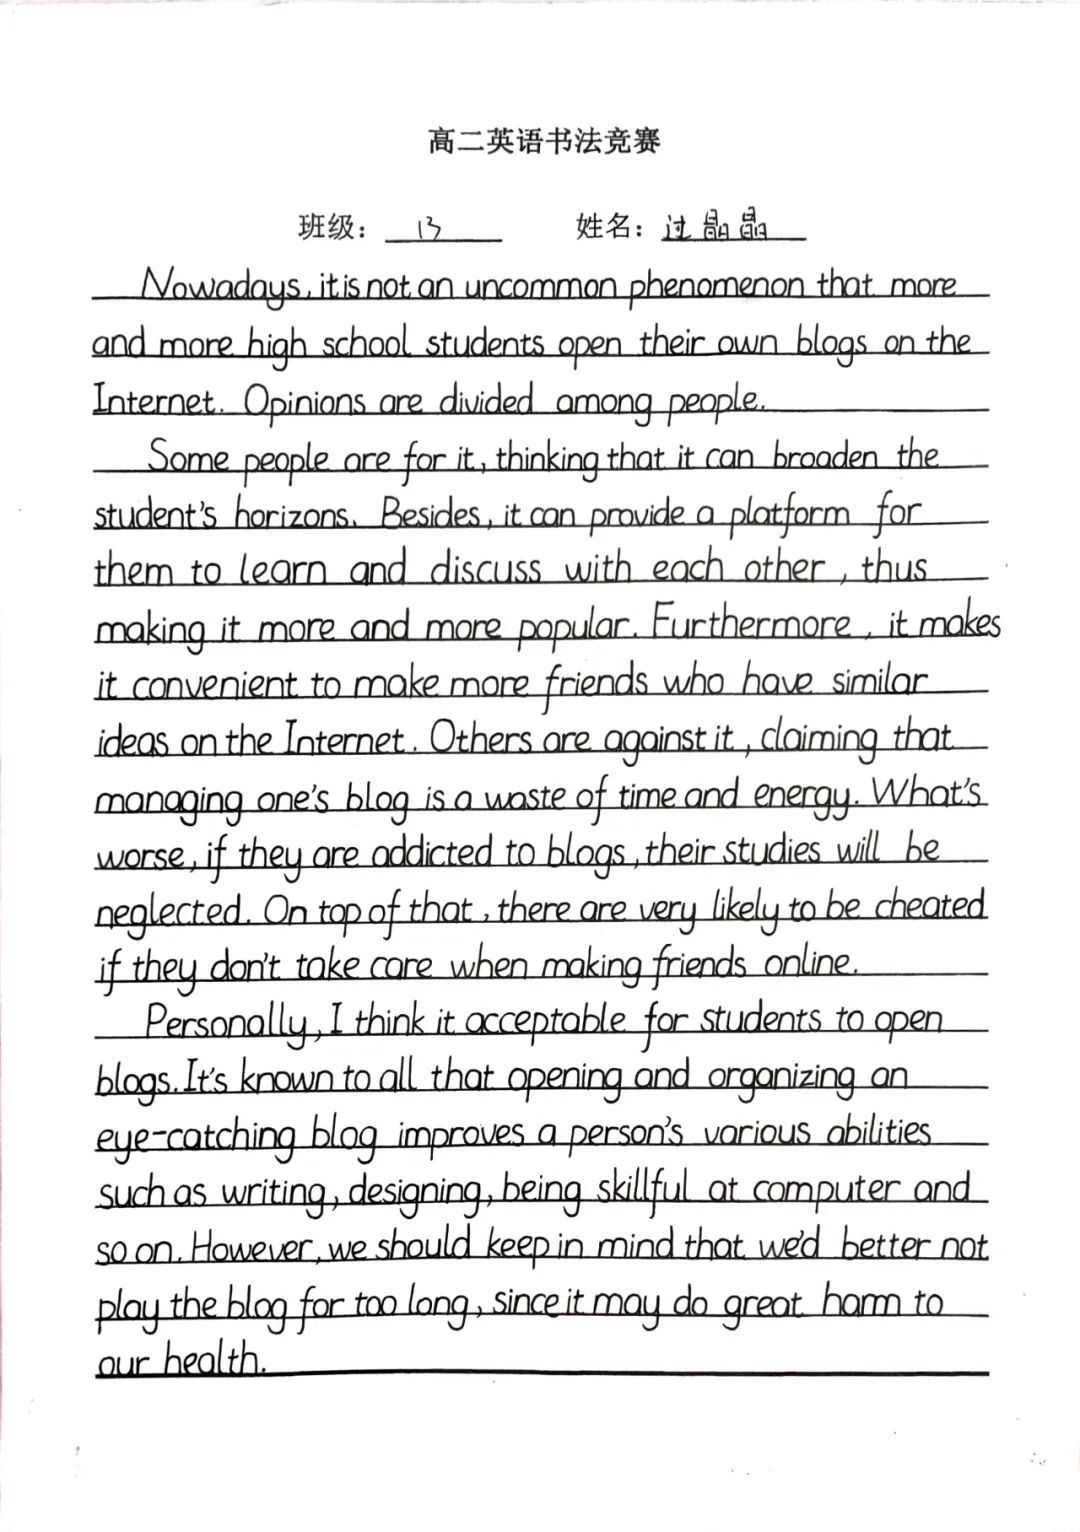 高二英语书法竞赛
班级：13 姓名：过晶晶
Nowadays, it is not an uncommon phenomenon that more
and more high school students open their own blogs on the
Internet. Opinions are divided among people.
Some people are for it, thinking that it can broaden the
student's horizons. Besides, it can provide a platform for
them to learn and discuss with each other, thus
making it more and more popular. Furthermore, it makes
it convenient to make more friends who have similar
ideas on the Internet. Others are against it, claiming that
managing one's blog is a waste of time and energy. What's
worse, if they are addicted to blogs, their studies will be
neglected. On top of that, there are very likely to be cheated
if they don't take care when making friends online.
Personally, I think it acceptable for students to open
blogs. It's known to all that opening and organizing an
eye-catching blog improves a person's various abilities
such as writing, designing, being skillful at computer and
so on. However, we should keep in mind that we'd better not
play the blog for too long, since it may do great harm to
our health.